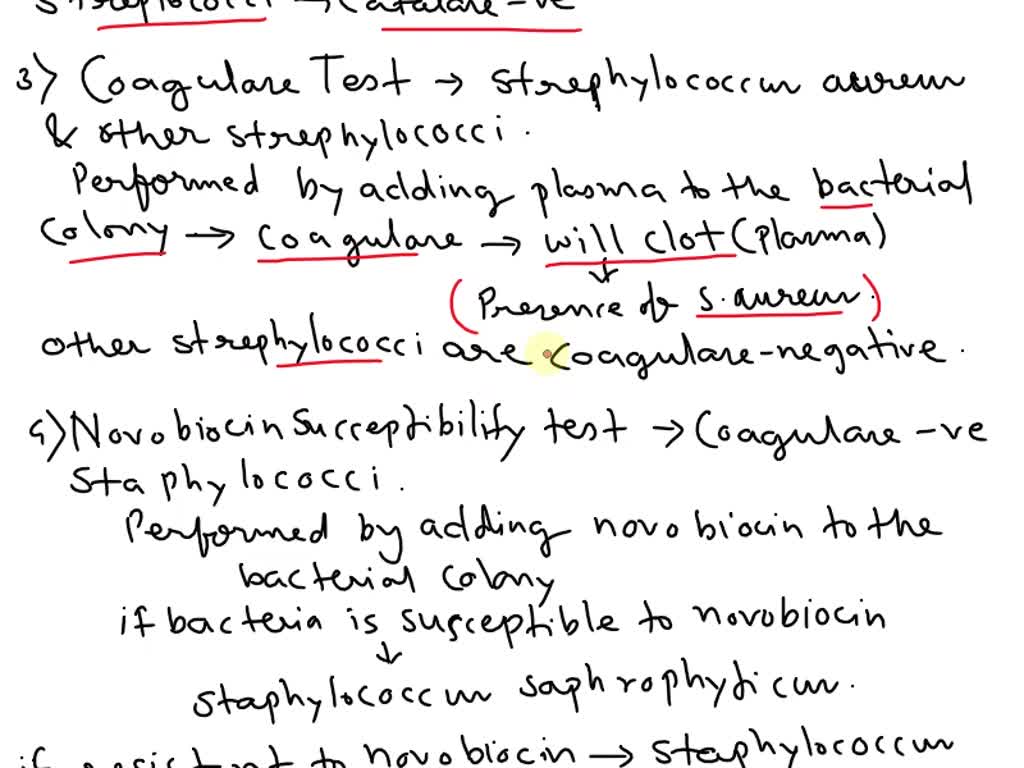 Streptococci → Catalase -ve
3) Coagulase Test → strephylococcus aureus
& other strephylococci.
Performed by adding plasma to the bacterial
colony → coagulase → will clot (plasma)
↓
(Presence of s. aureus.)
other strephylococci are coagulase-negative.
4) Novobiocin Susceptibility test → Coagulase -ve
Staphylococci.
Performed by adding novobiocin to the
bacterial colony
if bacteria is susceptible to novobiocin
↓
staphylococcus saphrophyticus.
if resistant to novobiocin → staphylococcus